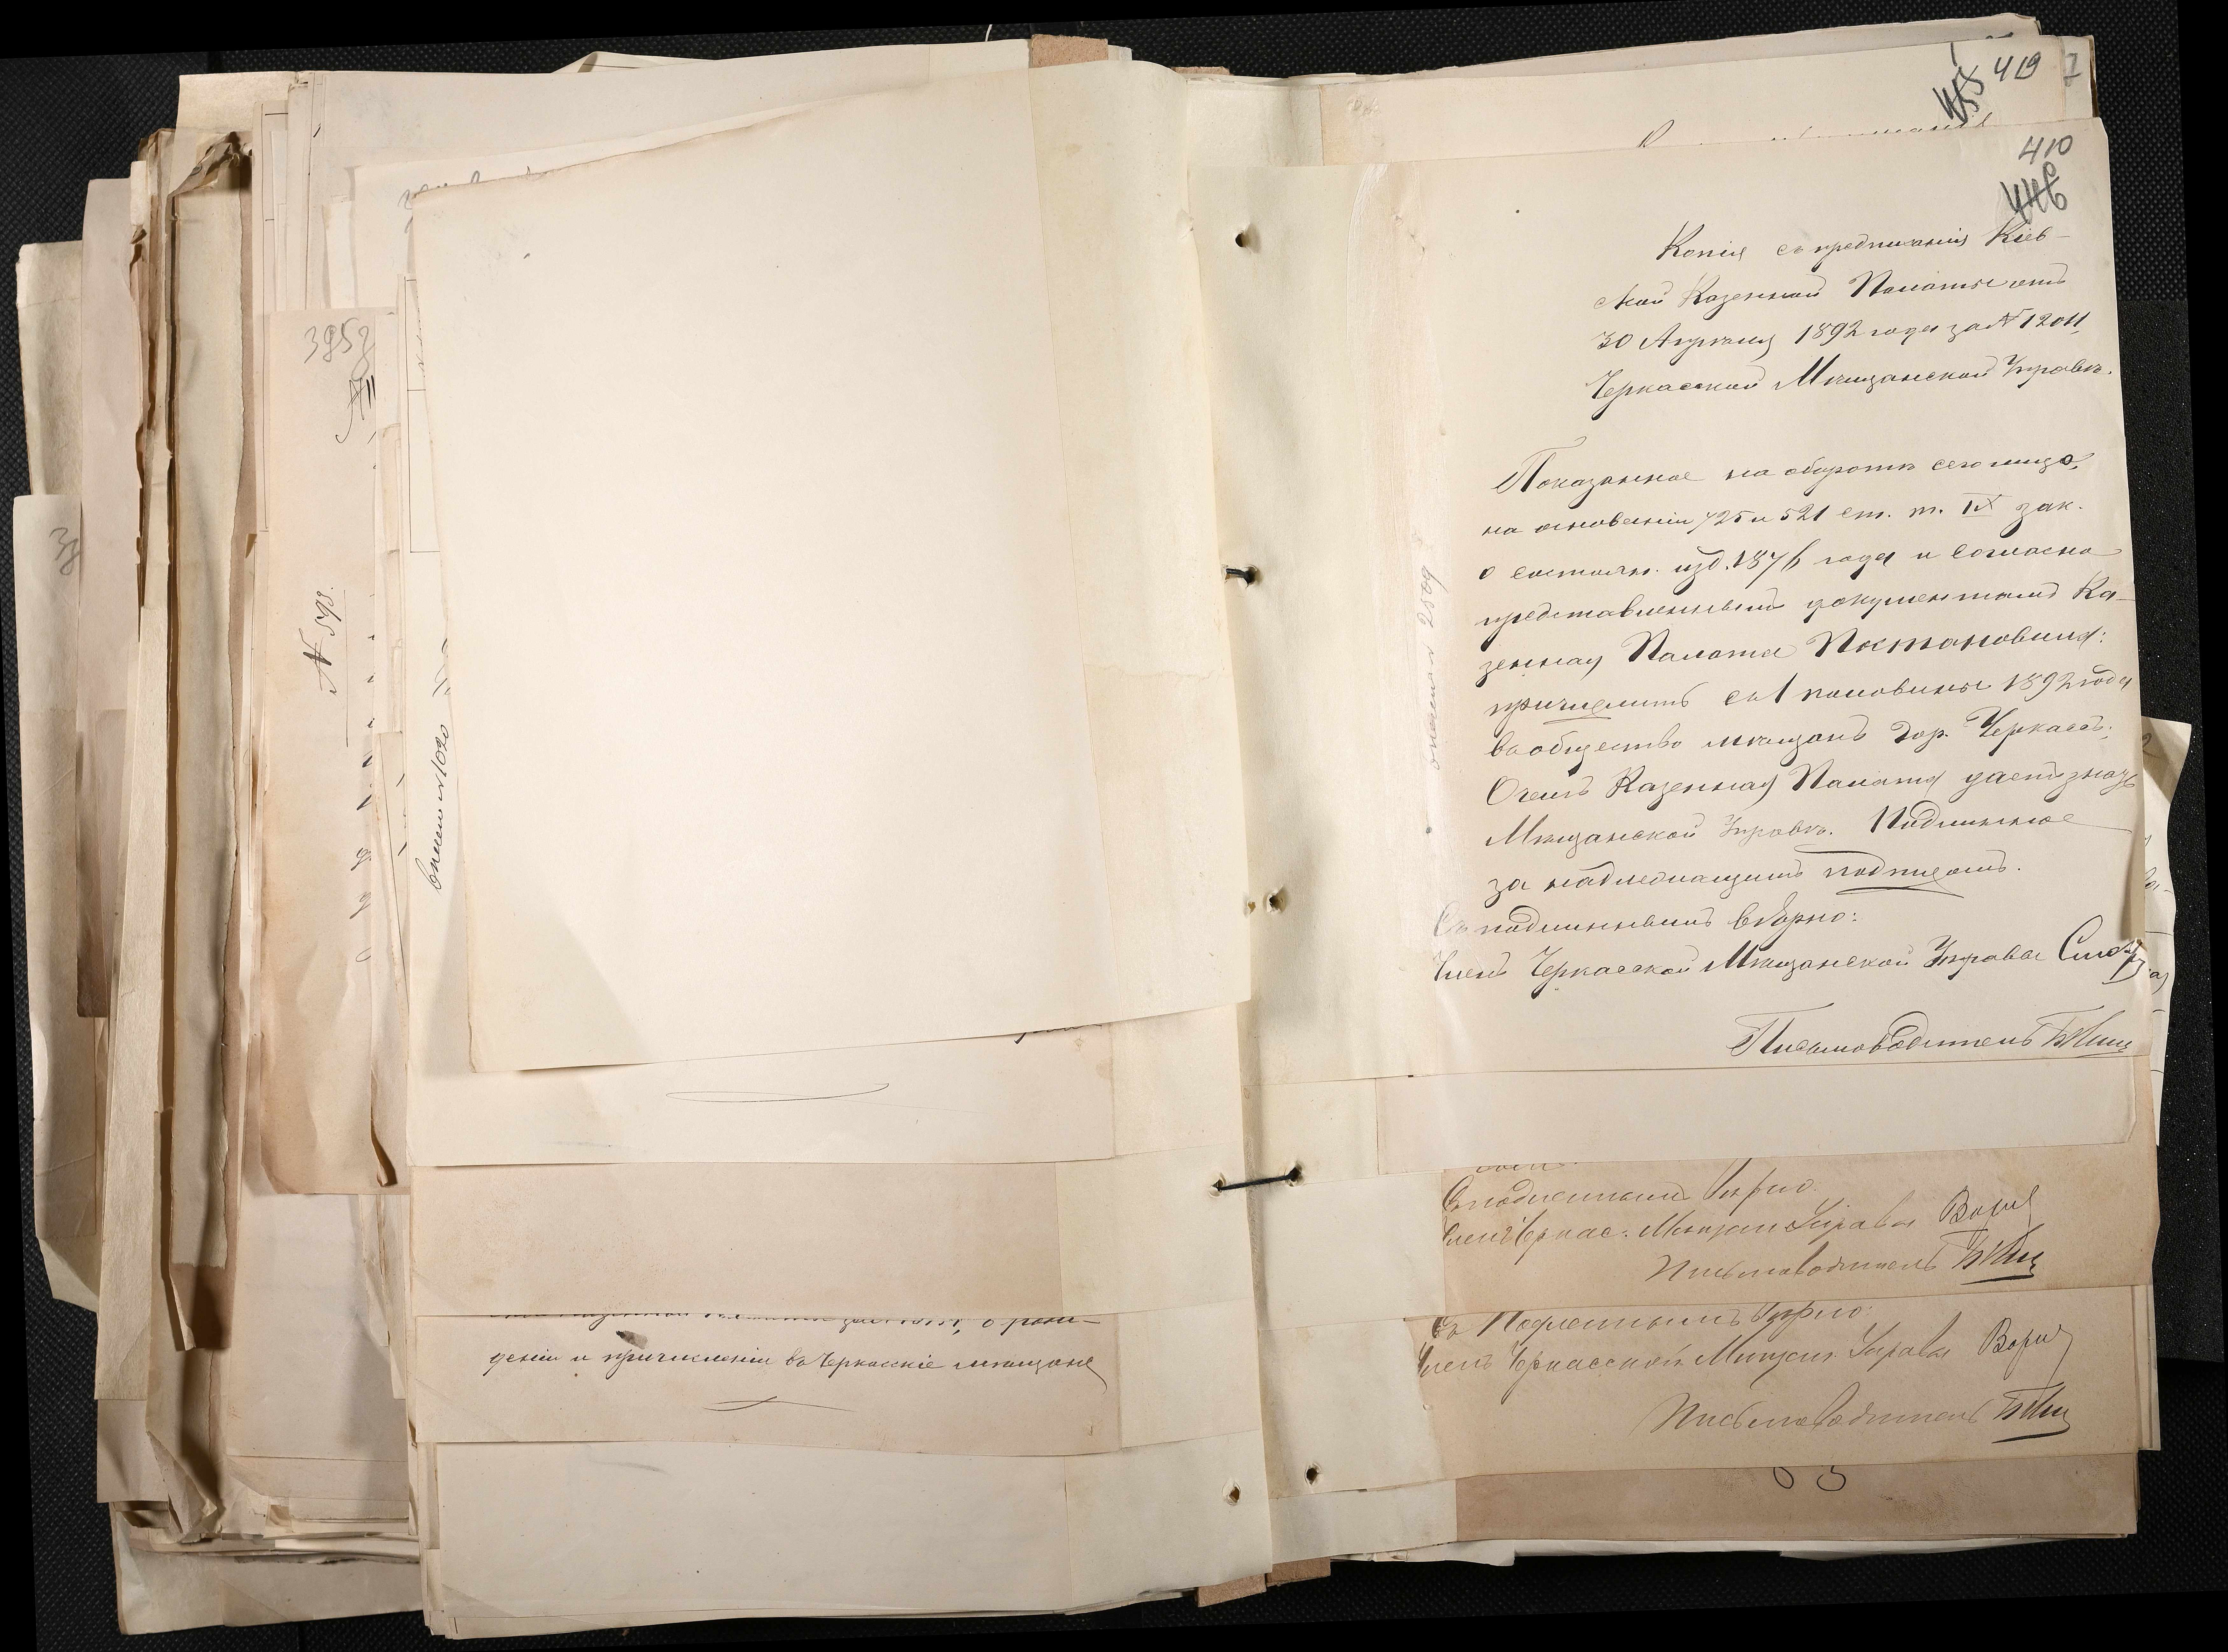 419
410
446
Копія съ предписанія Кіев-
ской Казенной Палаты отъ
30 Апрѣля 1892 года за № 12011,
Черкасской Мѣщанской Управѣ.
Показанное на оборотѣ сего лицо,
на основаніи 725 и 521 ст. т. IX зак.
о состоян. изд. 1876 года и согласно
представленнымъ документамъ Ка-
зенная Палата Постановила:
причислить съ 1 половины 1892 года
въ общество мѣщанъ гор. Черкасъ.
О чемъ Казенная Палата даетъ знать
Мѣщанской Управѣ. Подлинное
за надлежащимъ подписомъ.
Съ подлиннымъ вѣрно:
Членъ Черкасской Мѣщанской Управы
Письмоводитель
Съ подлиннымъ вѣрно.
Членъ Черкас. Мѣщан Управы
Письмоводитель
Съ Подлиннымъ вѣрно:
Членъ Черкасской Мѣщан. Управы
Письмоводитель
деніи и причисленіи въ Черкасскіе мѣщане
№ 593.